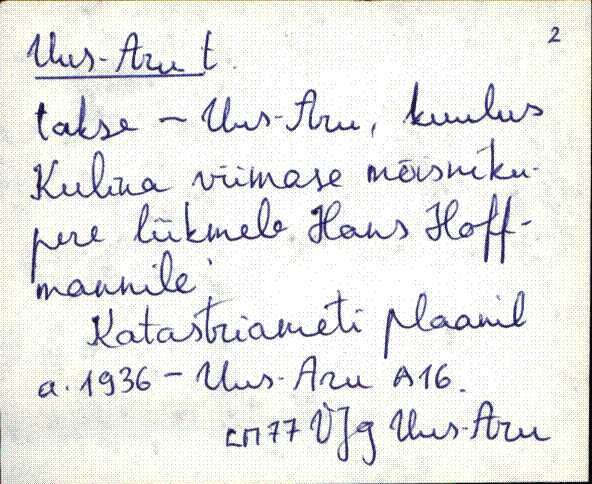 2
Uus-Aru t.
takse – Uus-Aru, kuulus
Kulina viimase mõisniku-
pere liikmele Hans Hoff-
mannile.
Katastriameti plaanil
a. 1936 – Uus-Aru A16.
77 VJg Uus-Aru